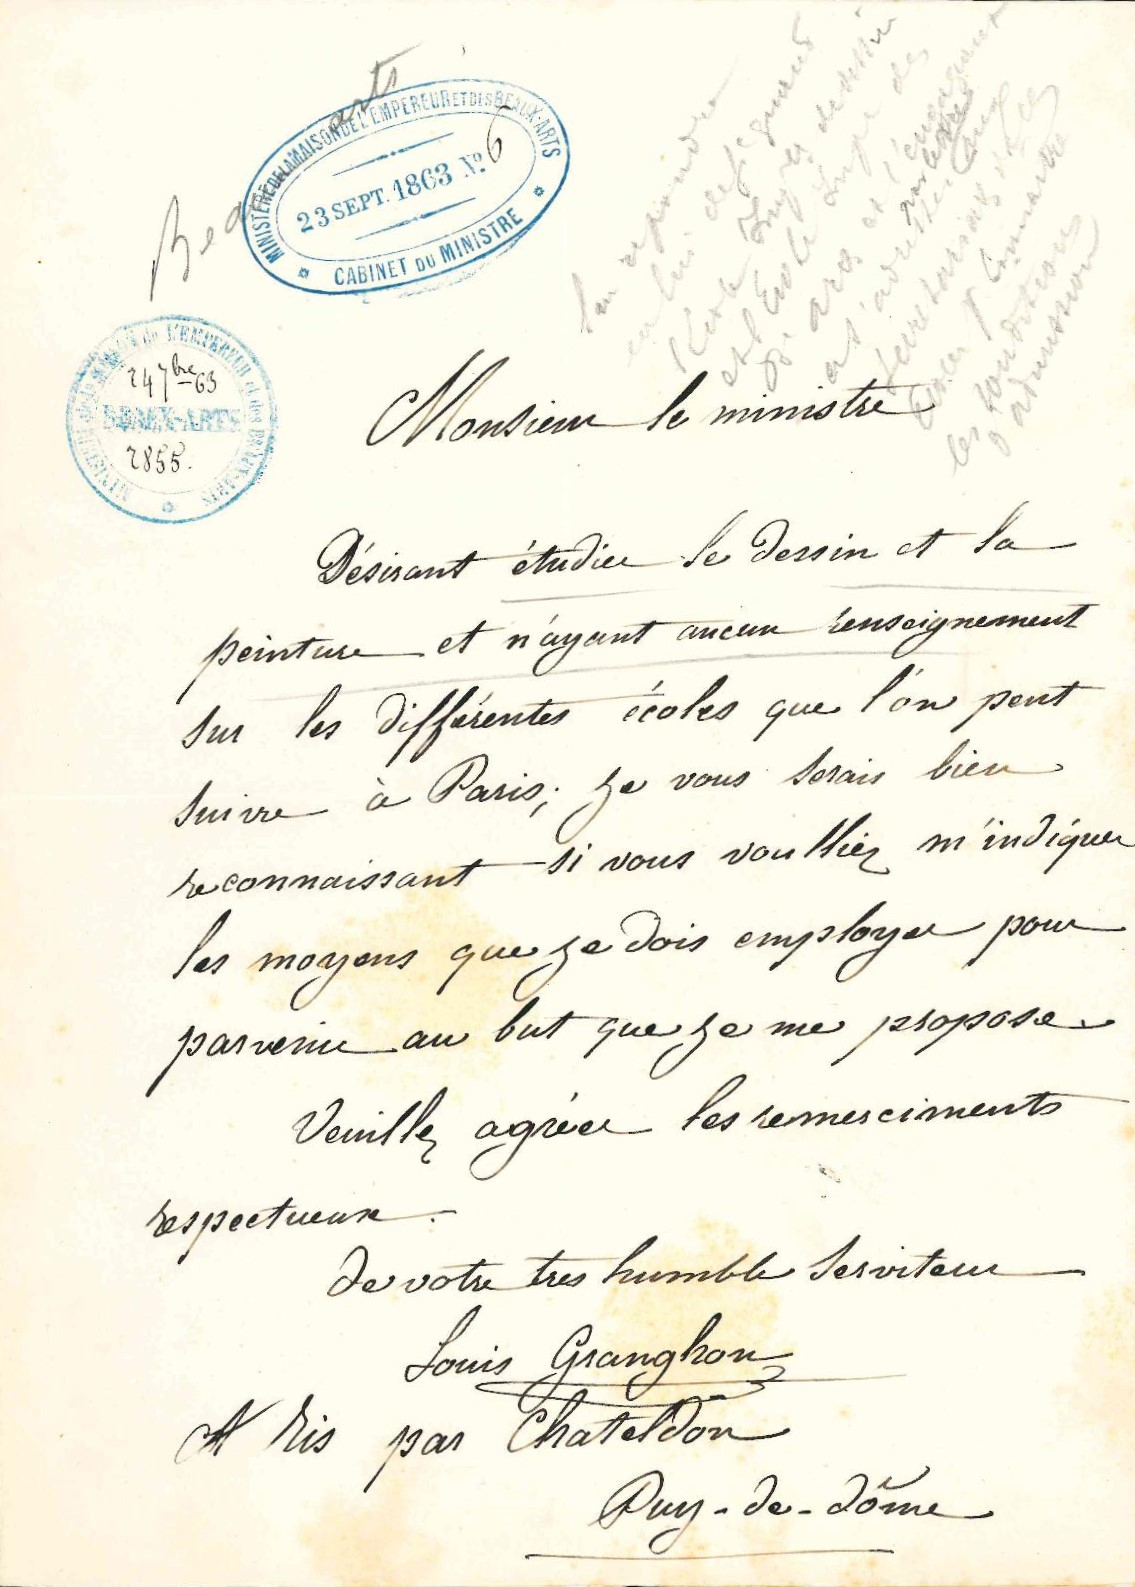 Beaux arts
MINISTÈRE DE LA MAISON DE L'EMPEREUR ET DES BEAUX-ARTS
23 SEPT. 1863 No. 6
CABINET DU MINISTRE
MINISTÈRE de la MAISON de l'EMPEREUR et des BEAUX-ARTS
24 7bre 63
BEAUX-ARTS
2855.
lui répondre
en lui désignant
l'école
et l'école
arts et l'engageant
à s'adresser
secrétariat
pour connaître
les conditions
d'admission
Monsieur le ministre
Désirant étudier le dessin et la
peinture et n'ayant aucun renseignement
sur les différentes écoles que l'on peut
suivre à Paris; je vous serais bien
reconnaissant si vous voulliez m'indiquer
les moyens que je dois employer pour
parvenir au but que je me propose.
Veuillez agréer les remerciments
respectueux.
de votre tres humble serviteur
Louis Granghon
A Ris par Chateldon
Puy-de-dôme